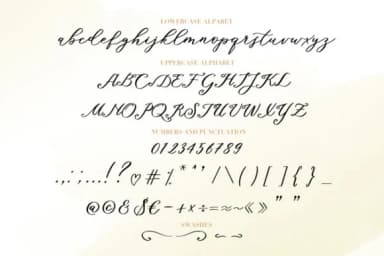 LOWERCASE ALPABET
abcdefghijklmnopqrstuvwxyz
UPPERCASE ALPHABET
ABCDEFGHIJKL
MNOPQRSTUVWXYZ
NUMBERS AND PUNCTUATION
0123456789
.,:;...!?♡#%*“’/\()[]{}_
@©&$€-+×÷=≈~«»""
SWASHES